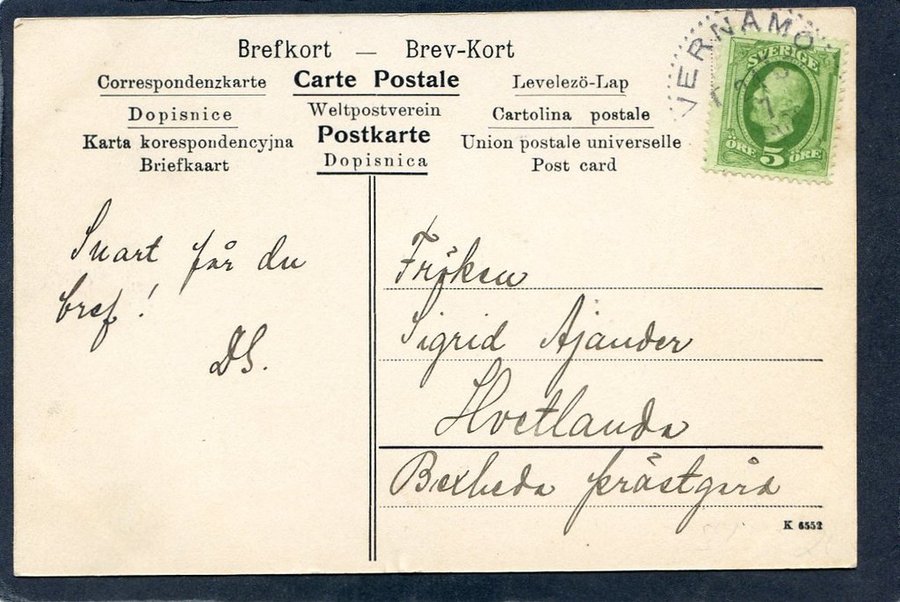 Brefkort — Brev-Kort
Correspondenzkarte Carte Postale Levelezö-Lap
Dopisnice Weltpostverein Cartolina postale
Karta korespondencyjna Postkarte Union postale universelle
Briefkaart Dopisnica Post card
VERNAMO
SVERIGE
ÖRE 5 ÖRE
Snart får du
bref!
DS.
Fröken
Sigrid Ajander
Hvetlanda
Bexheda prästgård
K 6552